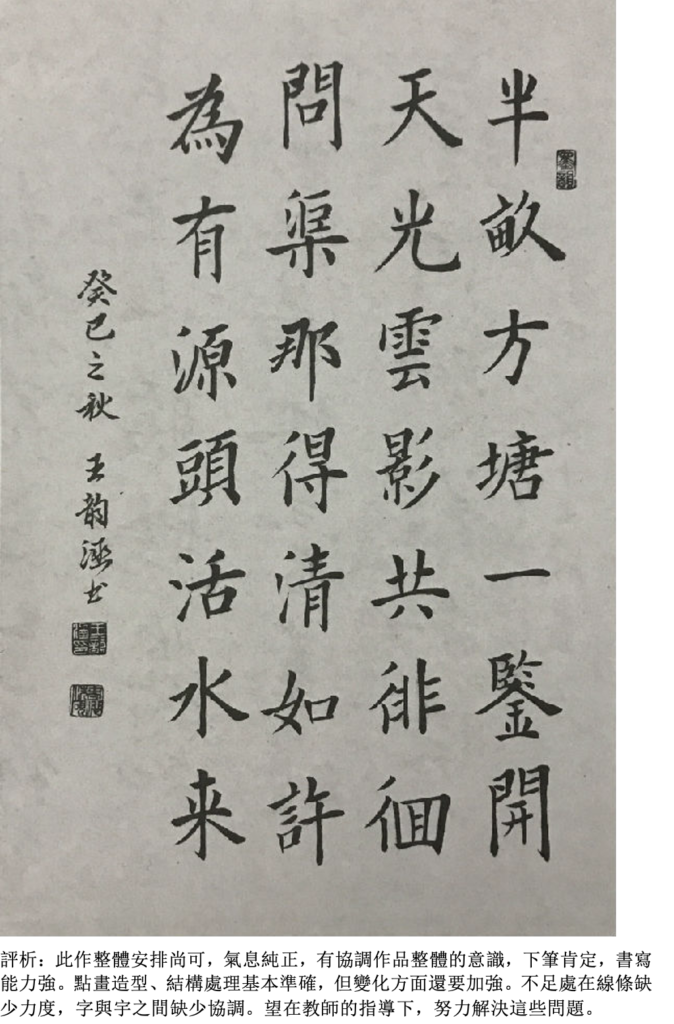 半畝方塘一鑒開
天光雲影共徘徊
問渠那得清如許
為有源頭活水来
癸巳之秋 王韵涵书
評析：此作整體安排尚可，氣息純正，有協調作品整體的意識，下筆肯定，書寫
能力強。點畫造型、結構處理基本準確，但變化方面還要加強。不足處在線條缺
少力度，字與宇之間缺少協調。望在教師的指導下，努力解決這些問題。